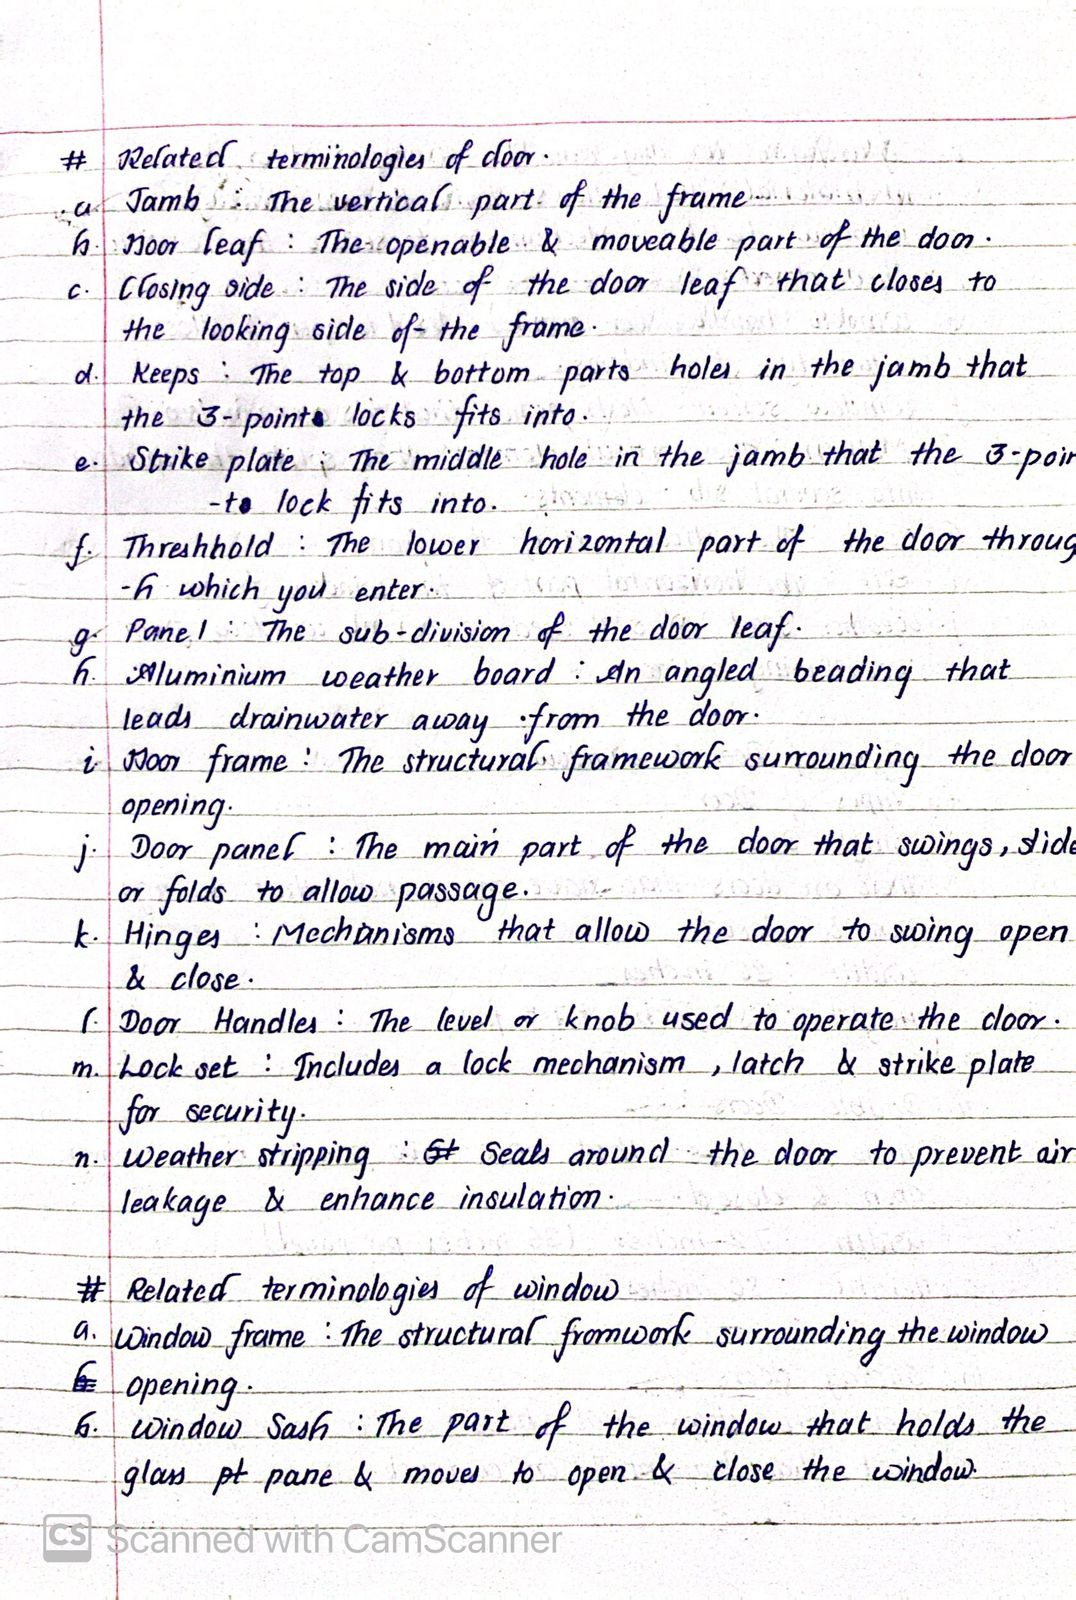 # Related terminologies of door.
a. Jamb : The vertical part of the frame
b. Door leaf : The openable & moveable part of the door.
c. Closing side : The side of the door leaf that closes to
the looking side of the frame.
d. Keeps : The top & bottom parts holes in the jamb that
the 3-points locks fits into.
e. Strike plate : The middle hole in the jamb that the 3-poin
-ts lock fits into.
f. Threshhold : The lower horizontal part of the door throug
-h which you enter.
g. Panel : The sub-division of the door leaf.
h. Aluminium weather board : An angled beading that
leads drainwater away from the door.
i Door frame : The structural framework surrounding the door
opening.
j. Door panel : The main part of the door that swings, slide
or folds to allow passage.
k. Hinges : Mechanisms that allow the door to swing open
& close.
l. Door Handles : The level or knob used to operate the door.
m. Lock set : Includes a lock mechanism , latch & strike plate
for security.
n. Weather stripping : Seals around the door to prevent air
leakage & enhance insulation.
# Related terminologies of window
a. Window frame : The structural fromwork surrounding the window
opening.
b. Window Sash : The part of the window that holds the
glass pt pane & moves to open & close the window.
CS Scanned with CamScanner